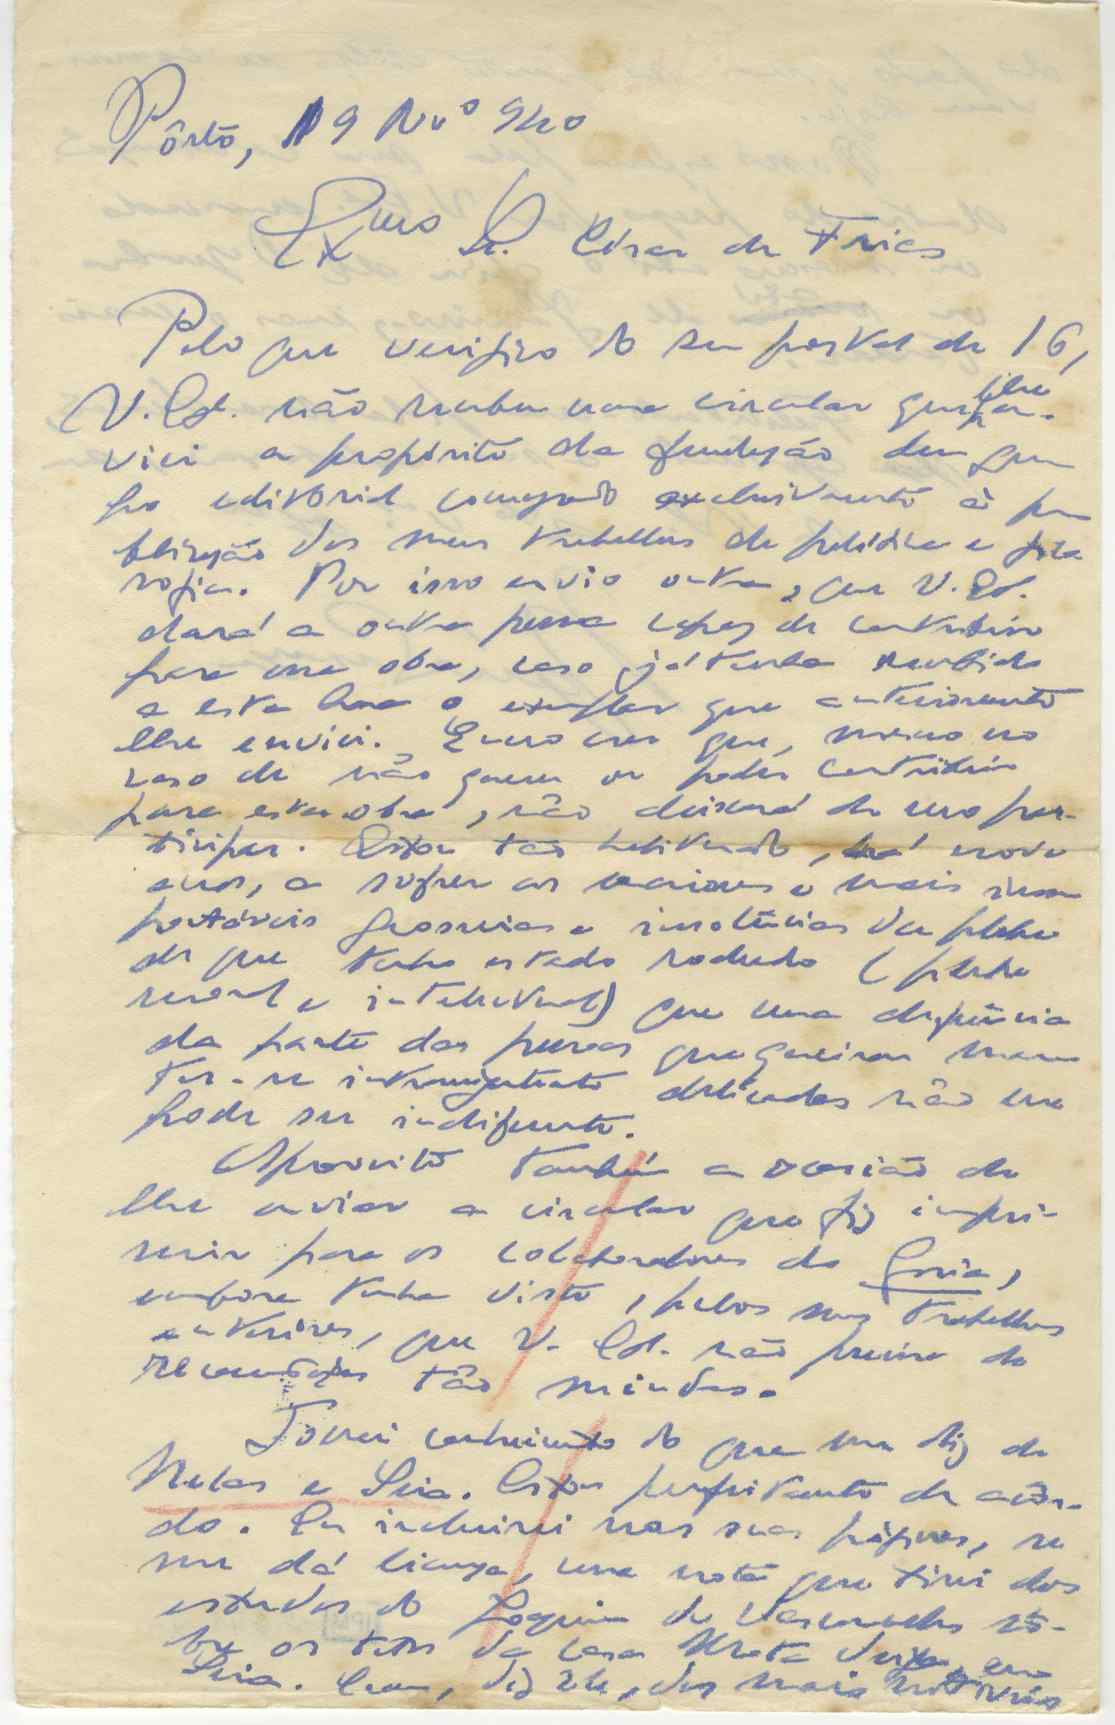 Pôrto, 19 Nvº 940
Exmo Sr. César de Frias
Pelo que verifico do seu postal de 16,
V. Ex. não recebeu uma circular que lhe en-
viei a propósito da fundação dum gru-
po editorial consagrado exclusivamente à pu
blicação dos meus trabalhos de política e filo
sofia. Por isso envio outra, que V. Ex.
dará a outra pessoa capaz de contribuir
para essa obra, caso já tenha recebido
a esta hora o exemplar que anteriormente
lhe enviei. Quero crer que, mesmo no
caso de não querer ou poder contribuir
para esta obra, não deixará de mo par-
ticipar. Estou tão habituado, há nove
anos, a sofrer as maiores e mais insu
portáveis grosserias e insolências da plebe
de que tenho estado rodeado (plebe
moral e intelectual) que uma deferência
da parte das pessoas que queiram man
ter-se intransigentemente delicadas não me
pode ser indiferente.
Aproveito também a ocasião de
lhe enviar a circular que fiz impri-
mir para os colaboradores do Guia,
embora tenha visto, pelos seus trabalhos
anteriores, que V. Ex. não precisa de
recomendações tão miúdas.
Tomei conhecimento do que me diz de
Nelas e Seia. Estou perfeitamente de acôr-
do. Eu incluirei nas suas páginas, se
me dá licença, uma nota que tirei dos
estudos do Joaquim de Vasconcelos sô-
bre os tetos da casa Mota Veiga, em
Seia. Eram, diz êle, dos mais notáveis